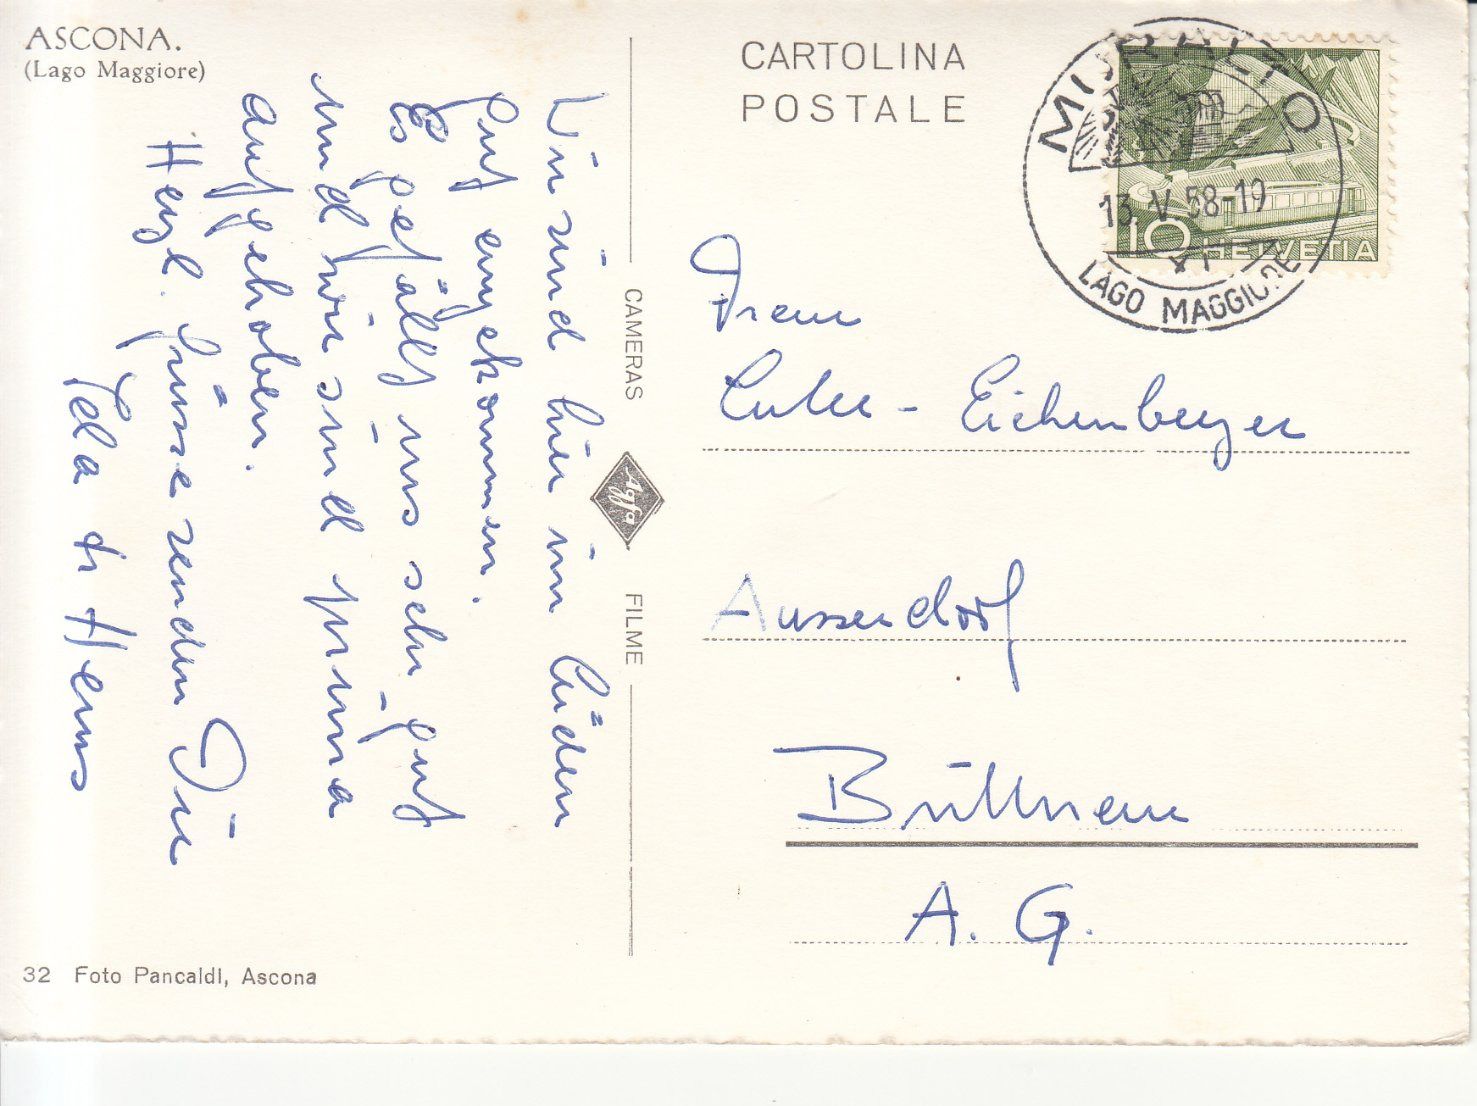 ASCONA.
(Lago Maggiore)
Wir sind hier im Süden
gut angekommen.
Es gefällt uns sehr gut
und wir sind prima
aufgehoben.
Herzl. Grüsse senden Dir
& Hans
32 Foto Pancaldi, Ascona
CAMERAS
Agfa
FILME
CARTOLINA
POSTALE
MURALTO
13.V.58-19
LAGO MAGGIORE
10 HELVETIA
Frau
Eichenberger
Ausserdorf
A. G.